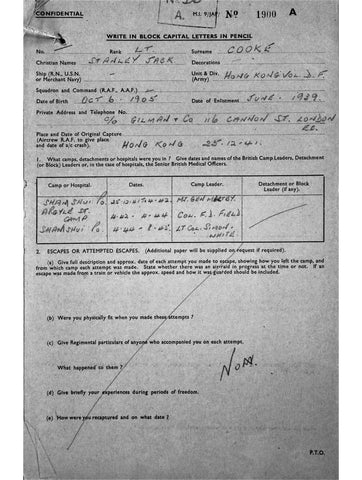 CONFIDENTIAL
A. M.I. 9/JAP/ No 1900 A
WRITE IN BLOCK CAPITAL LETTERS IN PENCIL
No. Rank LT Surname COOKE
Christian Names STANLEY JACK Decorations
Ship (R.N., U.S.N. or Merchant Navy) Unit & Div. (Army) HONG KONG VOL D.F.
Squadron and Command (R.A.F., A.A.F.)
Date of Birth OCT 6 - 1905 Date of Enlistment JUNE - 1939
Private Address and Telephone No.
C/o GILMAN & CO 116 CANNON ST. LONDON
EC.
Place and Date of Original Capture
(Aircrew R.A.F. to give place
and date of a/c crash). HONG KONG 25-12-41.
1. What camps, detachments or hospitals were you in? Give dates and names of the British Camp Leaders, Detachment
(or Block) Leaders or, in the case of hospitals, the Senior British Medical Officers.
Camp or Hospital. Dates. Camp Leader. Detachment or Block Leader (if any).
SHAMSHUI PO. 25-12-41 - 4-42. MJ. GEN MALTBY.
ARGYLE ST. CAMP 4-42 - 4-44 COL. F.D. FIELD
SHAMSHUI PO. 4-44 - 8-45. LT COL. SIMON-WHITE
2. ESCAPES OR ATTEMPTED ESCAPES. (Additional paper will be supplied on request if required).
(a) Give full description and approx. date of each attempt you made to escape, showing how you left the camp, and
from which camp each attempt was made. State whether there was an air-raid in progress at the time or not. If an
escape was made from a train or vehicle the approx. speed and how it was guarded should be included.
(b) Were you physically fit when you made these attempts?
(c) Give Regimental particulars of anyone who accompanied you on each attempt.
What happened to them?
(d) Give briefly your experiences during periods of freedom.
(e) How were you recaptured and on what date?
P.T.O.